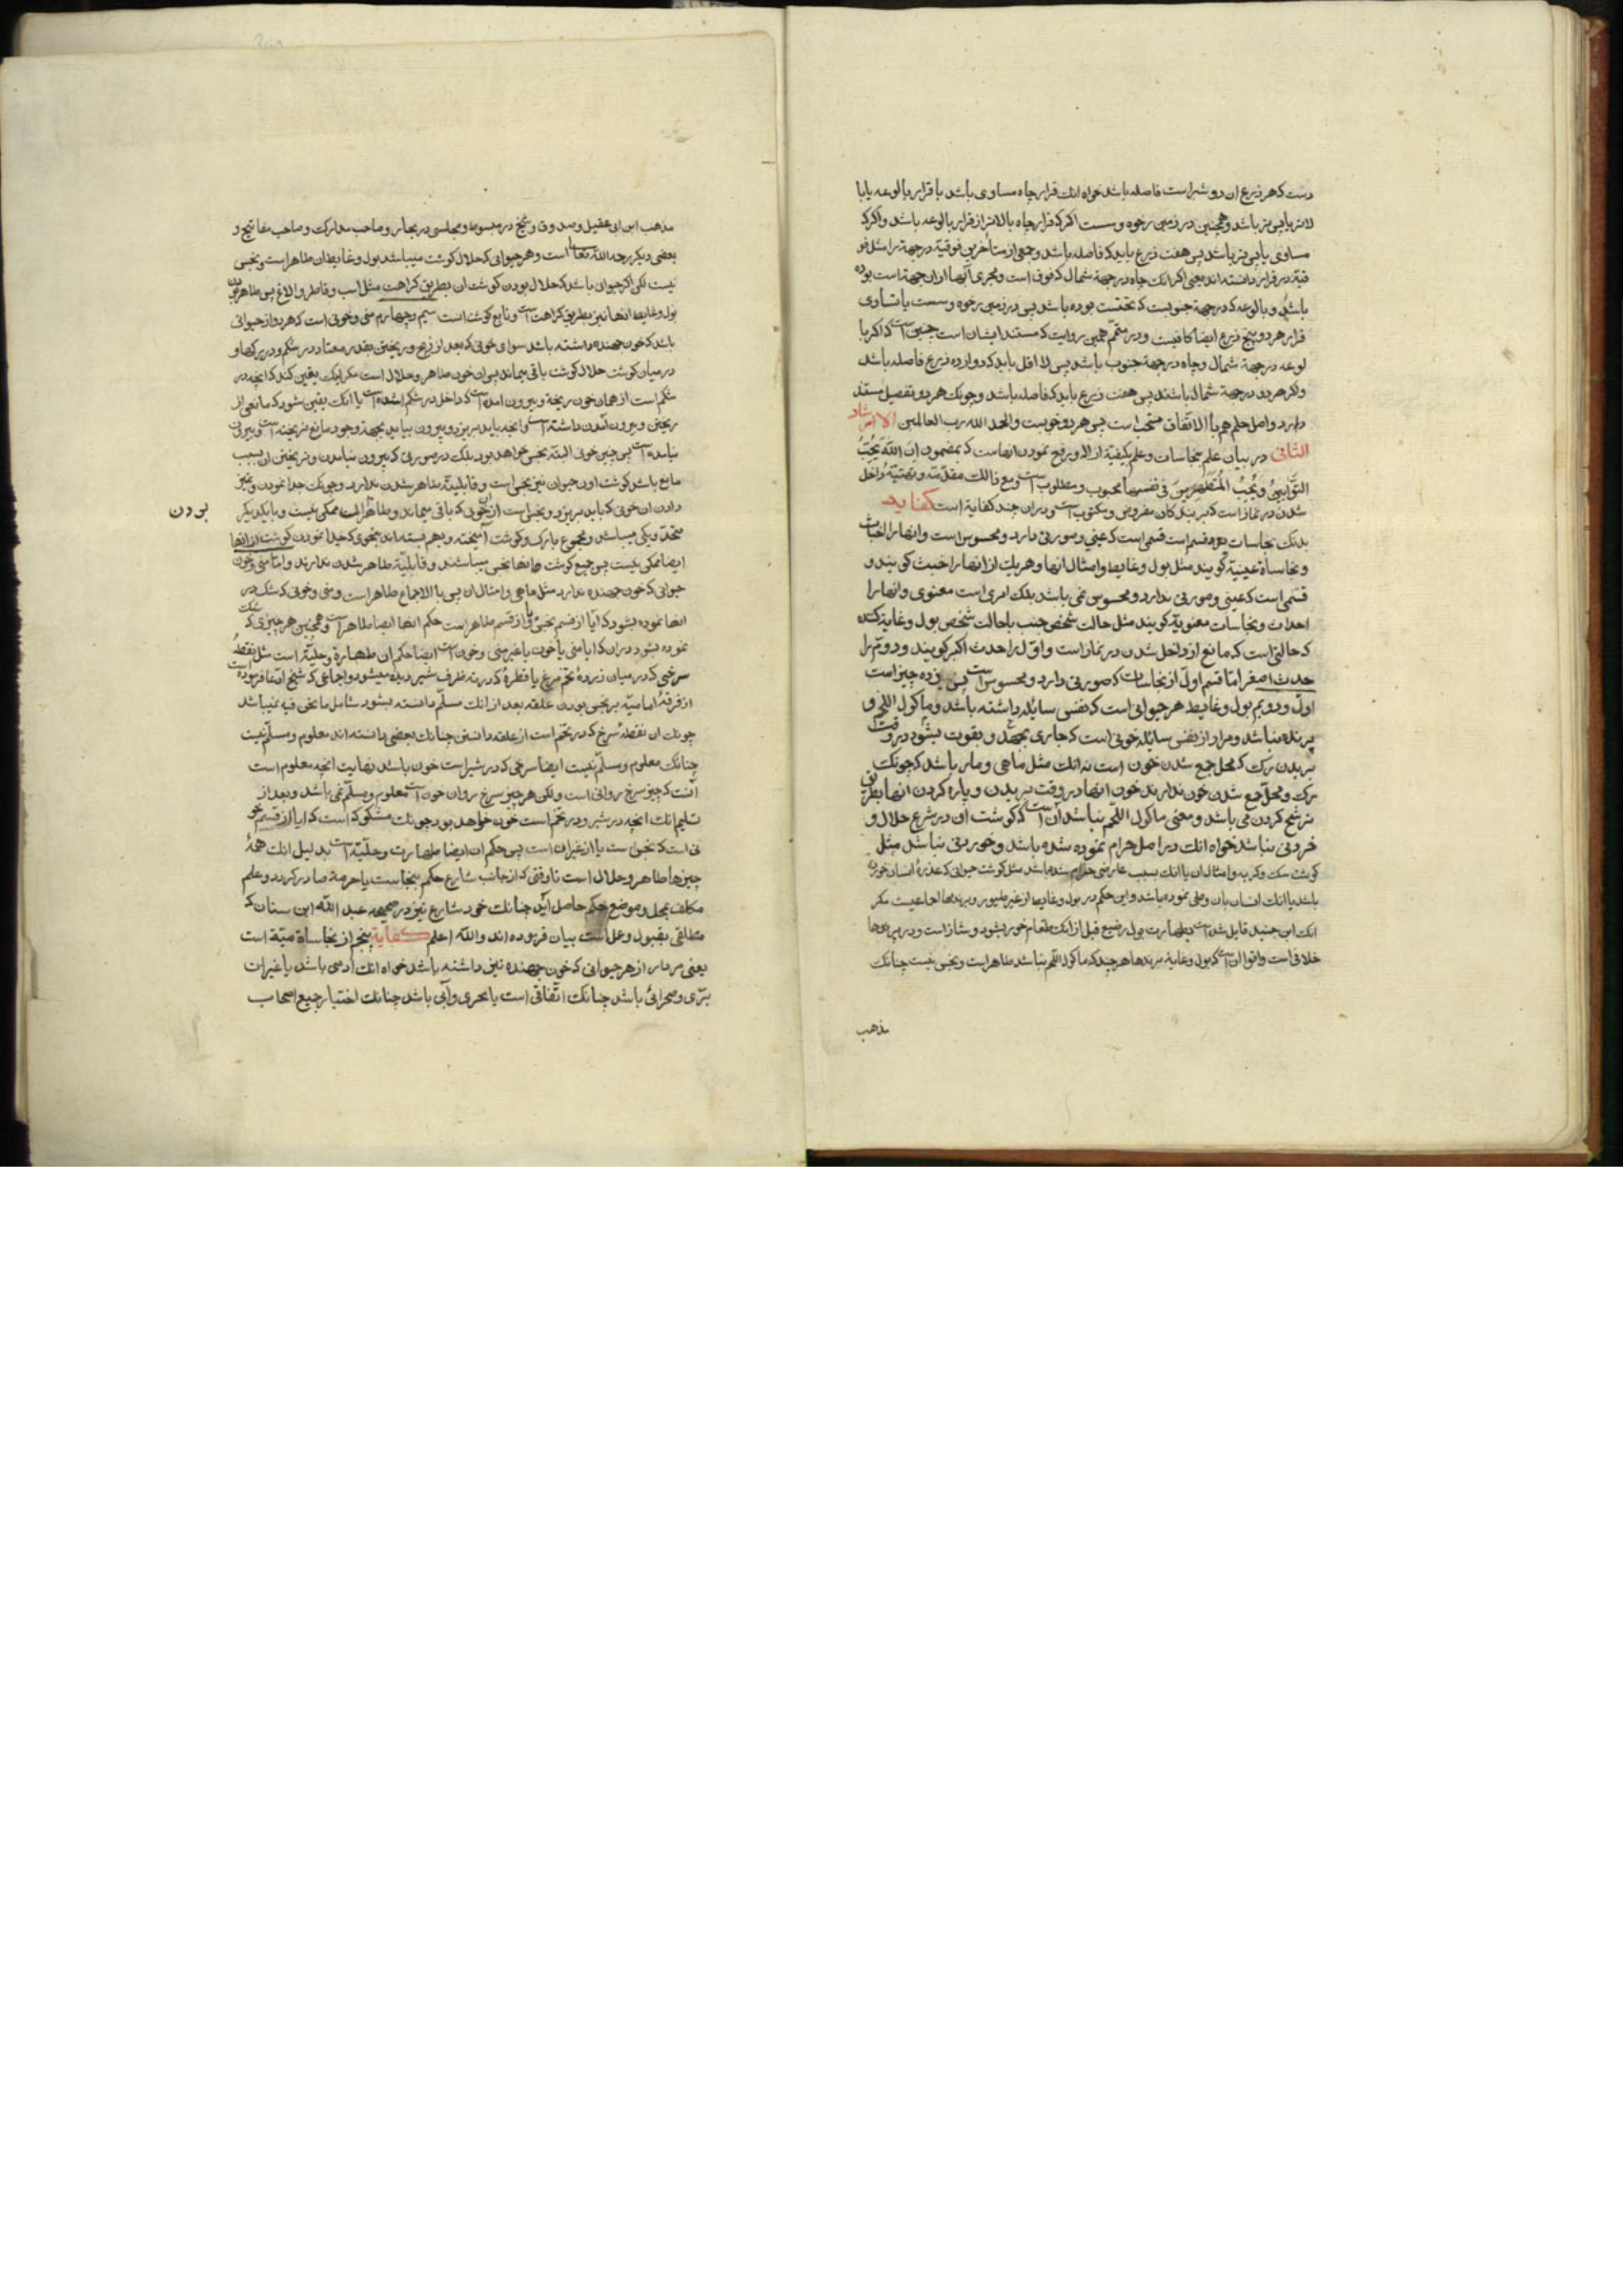 دست که هر ذرع ان دو شبر است فاصله باشد خواه انکه قرار چاه مساوی باشد با قرار بالوعه یا با
لاتر یا پی تر باشد و همچنین در زمین رخوه و سست اکر که قرار چاه بالاتر از قرار بالوعه باشد و اکر که
مساوی یا پی تر باشد پس هفت ذرع باید که فاصله باشد و جمعی از متأخرین فوقیة در جهة را مثل فو
قیة در قرار دانسته اند یعنی اکر انکه چاه در جهة شمال که فوق است و مجری آبها از ان جهة است بوده
باشد و بالوعه که در جهة جنوبست که تحتست بوده باشد پس در زمین رخوه و سست یا تساوی
قرار هر دو پنج ذرع ایضا کافیست و در متمم همین روایت که مستند ایشان است چنین است که اکر با
لوعه در جهة شمال و چاه در جهة جنوب باشد پس لا اقل باید که دوازده ذرع فاصله باشد
و اکر هر دو در جهة شمال باشند پس هفت ذرع باید که فاصله باشد و چونکه هر دو تفصیل مستند
دارد و اصل حکم هم بالاتفاق مستحب است پس هر دو خوبست والحمد الله رب العالمین الارشاد
الثانی در بیان علم بنجاسات و علم بکیفیة ازاله و رفع نمودن انهاست که بمضمون ان الله یحب
التوابین و یحب المتطهرین فی نفسها محبوب و مطلوب است و مع ذالک مقدمة و تهیئة داخل
شدن در نماز است که بر بندکان مفروض و مکتوب است و در ان چند کفایة است کفایة
بدنکه نجاسات دو قسم است قسمی است که عینی و صورتی دارد و محسوس است و انها را اخباث
و نجاسأة عینیة کویند مثل بول و غایط و امثال انها و هر یک از انها را خبث کویند و
قسمی است که عینی و صورتی ندارد و محسوس نمی باشد بلکه امری است معنوی و انها را
احداث و نجاسات معنویة کویند مثل حالت شخص جنب یا حالت شخص بول و غایط کننده
که حالتی است که مانع از داخل شدن در نماز است و اول را حدث اکبر کویند و دویم را
حدث اصغر اما قسم اول از نجاسات که صورتی دارد و محسوس است پس ده چیز است
اول و دویم بول و غایط هر حیوانی است که نفس سایله داشته باشد و ماکول اللحم و
پرنده نباشد و مراد از نفس سایله خونی است که جاری بجهد و بقوت بشود در وقت
بریدن رک که محل جمع شدن خون است نه انکه مثل ماهی و مار باشد که چونکه
رک و محل جمع شدن خون ندارند خون انها در وقت بریدن و پاره کردن انها بطریق
ترشح کردن می باشد و معنی ماکول اللحم نباشد آن است که کوشت او در شرع حلال و
خردنی نباشد خواه انکه در اصل حرام نموده شده باشد و خوردنی نباشد مثل
کوشت سک و کربه و امثال ان یا انکه بسبب عارضی حرام شده باشد مثل کوشت حیوانی که عذره انسان خورده
باشد یا انکه انسان بان وطی نموده باشد و این حکم در بول و غایط از غیر طیور و پرندها اجماعیست مکر
انکه ابن جنید قایل شده است بطهارت بول رضیع قبل از انکه طعام خور بشود و شاذ است و در پرندها
خلافی است و اقوا ان است که بول و غایط پرندها هر چند که ماکول اللحم نباشد طاهر است و نجس نیست چنانکه
مذهب
مذهب ابن ابی عقیل و صدوق و شیخ در مبسوط و مجلسی در بحار و صاحب مدارک و صاحب مفاتیح و
بعضی دیکر رحمه الله تعالی است و هر حیوانی که حلال کوشت میباشد بول و غایط ان طاهر است و نجس
نیست لکن اکر حیوانی باشد که حلال بودن کوشت ان بطریق کراهت مثل اسب و قاطر و الاغ پس طاهر بودن
بول و غایط انها نیز بطریق کراهت است و تابع کوشت است سیم و چهارم منی و خونی است که هر دو از حیوانی
باشد که خون جهنده داشته باشد سوای خونی که بعد از ذبح و ریختن بقدر معتاد در شکم و در رکها و
در میان کوشت حلال کوشت باقی بماند پس ان خون طاهر و حلال است مکر اینکه یقین کند که انچه در
شکم است از همان خون ریخته و بیرون امده است که داخل در شکم شده است یا انکه یقین شود که مانعی از
ریختن و بیرون آمدن داشته است و انچه باید بریزد و بیرون بیاید بجهة وجود مانع نریخته است و بیرون
نیامده است پس چنین خونی البته نجس خواهد بود بلکه در صورتی که بیرون نیامدن و نریختن ان بسبب
مانع باشد کوشت اون حیوان نیز نجس است و قابلیة طاهر شدن ندارد و چونکه جدا نمودن و تمیز
دادن ان خونی که باید بریزد و نجس است از ان خونی که باقی میماند و طاهر است ممکن نیست و با یکدیکر
بودن
متحد و یکی میباشد و مجموع با رک و کوشت آمیخته و بهم بسته اند بنحوی که جدا نمودن کوشت از انها
ایضا ممکن نیست پس جمیع کوشت ها انها نجس میباشند و قابلیة طاهر شدن ندارند و اما منی و خون
حیوانی که خون جهنده ندارد مثل ماهی و امثال ان پس بالاجماع طاهر است و منی و خونی که شک در
انها نموده بشود که آیا از قسم نجس و یا از قسم طاهر است حکم انها ایضا طاهر است و همچنین هر چیزی که شک
نموده بشود در ان که ایا منی یا خون یا غیر منی و خون است ایضا حکم ان طهارة و حلیة است مثل نقطه
سرخی که در میان زرده تخم مرغ یا قطره که در ته ظرف شیر دیده میشود و اجماعی که شیخ ادعا فرموده است
از فرقه امامیة بر نجس بودن علقه بعد از انکه مسلم دانسته بشود شامل ما نحن فیه نمیباشد
چونکه ان نقطه سرخ که در تخم است از علقه دانستن چنانکه بعضی دانسته اند معلوم و مسلم نیست
چنانکه معلوم و مسلم نیست ایضا سرخی که در شیر است خون باشد نهایت انچه معلوم است
انست که چیز سرخ روانی است و لکن هر چیز سرخ روان خون است معلوم و مسلم نمی باشد و بعد از
تسلیم انکه انچه در شیر و در تخم است خون خواهد بود چونکه مشکوک است که ایا از قسم خو
نی است که نجس است یا از غیر ان است پس حکم ان ایضا طهارت و حلیة است بدلیل انکه همه
چیزها طاهر و حلال است تا وقتی که از جانب شارع حکم بنجاست یا حرمة صادر کردد و علم
مکلف بمحل و موضع حکم حاصل آید چنانکه خود شارع نیز در صحیحه عبد الله ابن سنان که
متلقی بقبول و عمل است بیان فرموده اند و الله اعلم کفایة پنجم از نجاسأة میتة است
یعنی مردار از هر حیوانی که خون جهنده نیز داشته باشد خواه انکه آدمی باشد یا غیر ان
بری و صحرائی باشد چنانکه اتفاقی است یا بحری و آبی باشد چنانکه اختیار جمیع اصحاب